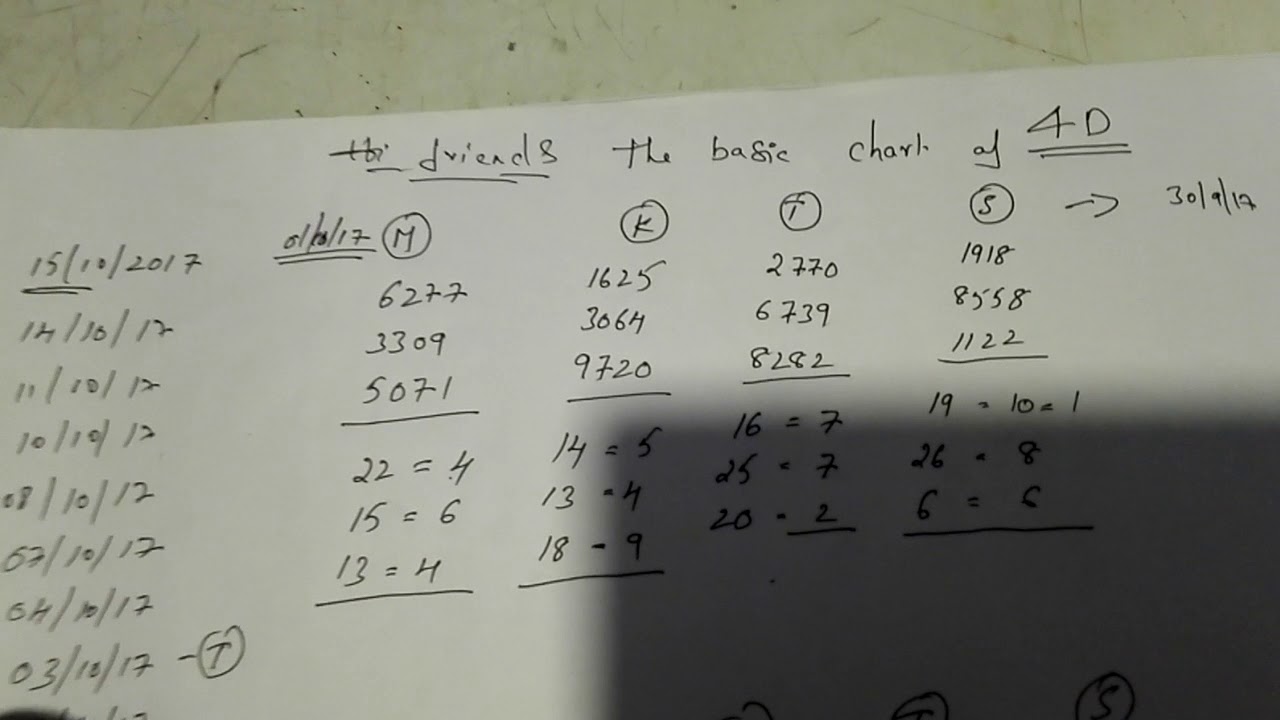 Hi friends The basic chart of 4D
01/10/17 M K T S → 30/9/17
15/10/2017 6277 1625 2770 1918
14/10/17 3309 3064 6739 8558
11/10/17 5071 9720 8282 1122
10/10/17 22 = 4 14 = 5 16 = 7 19 = 10 = 1
08/10/17 15 = 6 13 = 4 25 = 7 26 = 8
07/10/17 13 = 4 18 - 9 20 - 2 6 = 6
04/10/17
03/10/17 - T
T S